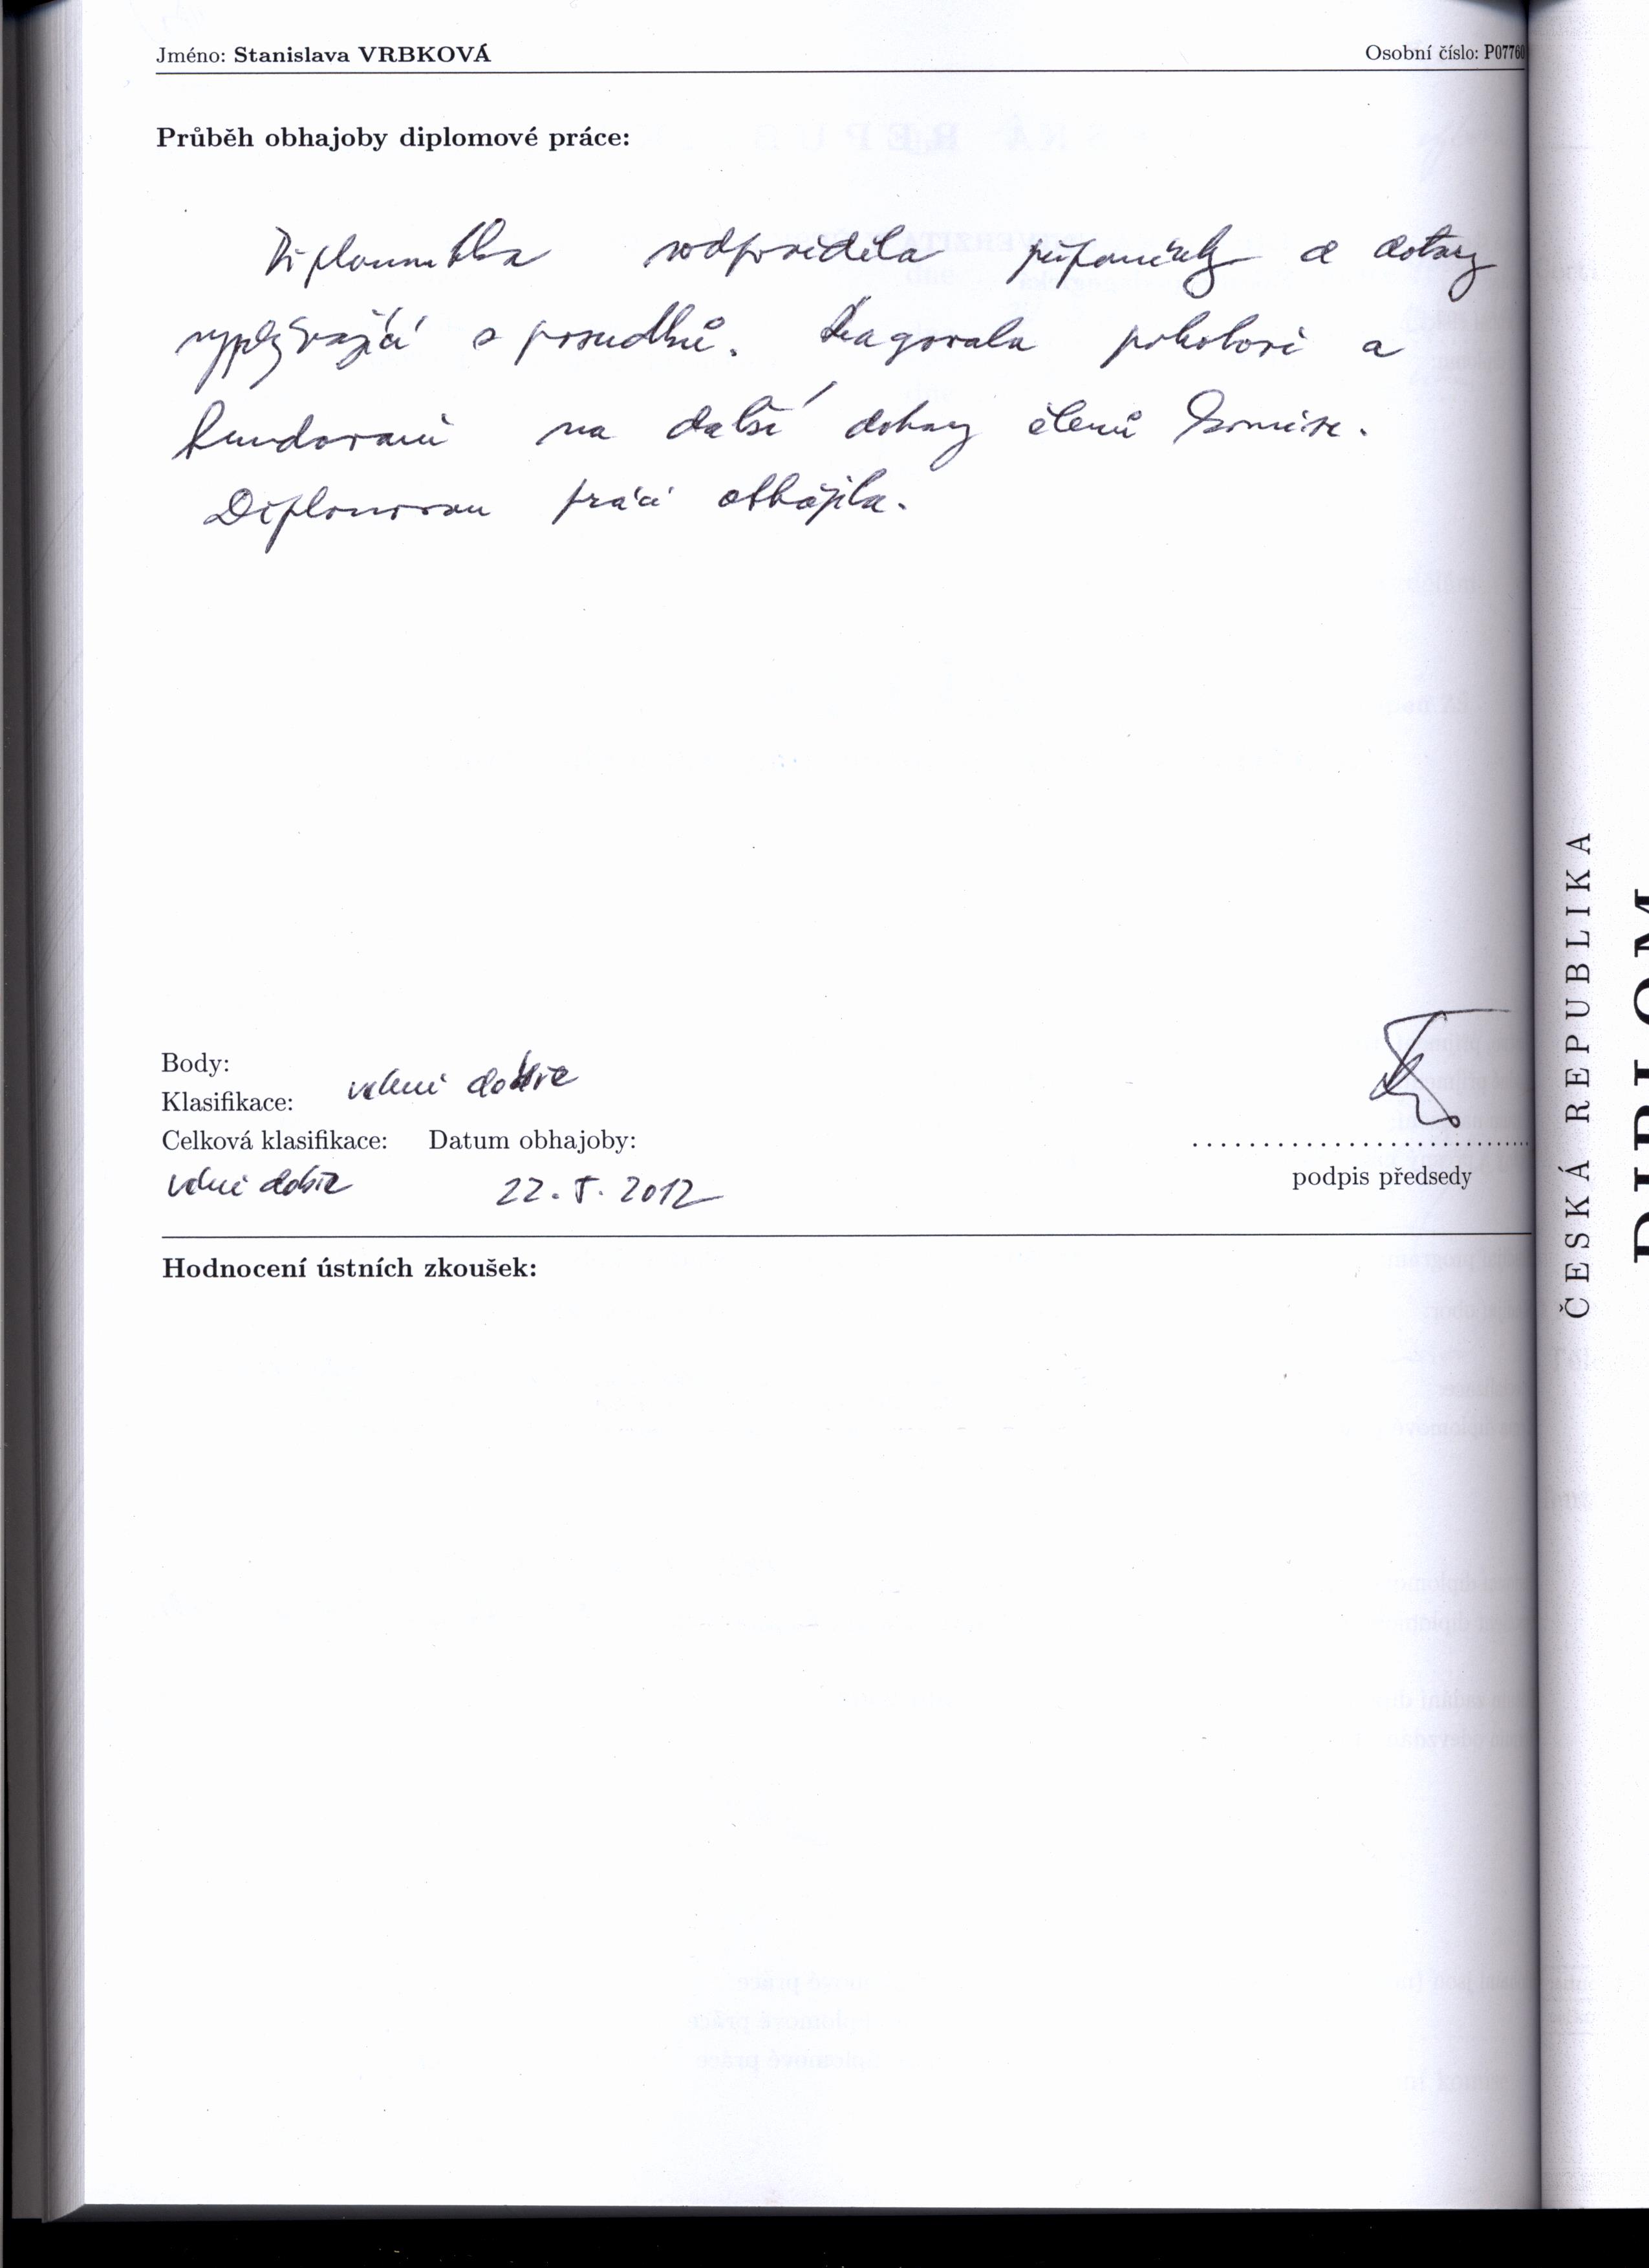 Jméno: Stanislava VRBKOVÁ Osobní číslo: P07760
Průběh obhajoby diplomové práce:
Diplomantka zodpověděla připomínky a dotazy
vyplývající z posudků. Reagovala pohotově a
fundovaně na další dotazy členů komise.
Diplomovou práci obhájila.
Body:
velmi dobře
Klasifikace:
Celková klasifikace: Datum obhajoby:
velmi dobře 22. 5. 2012
podpis předsedy
Hodnocení ústních zkoušek:
ČESKÁ REPUBLIKA
DIPLOM